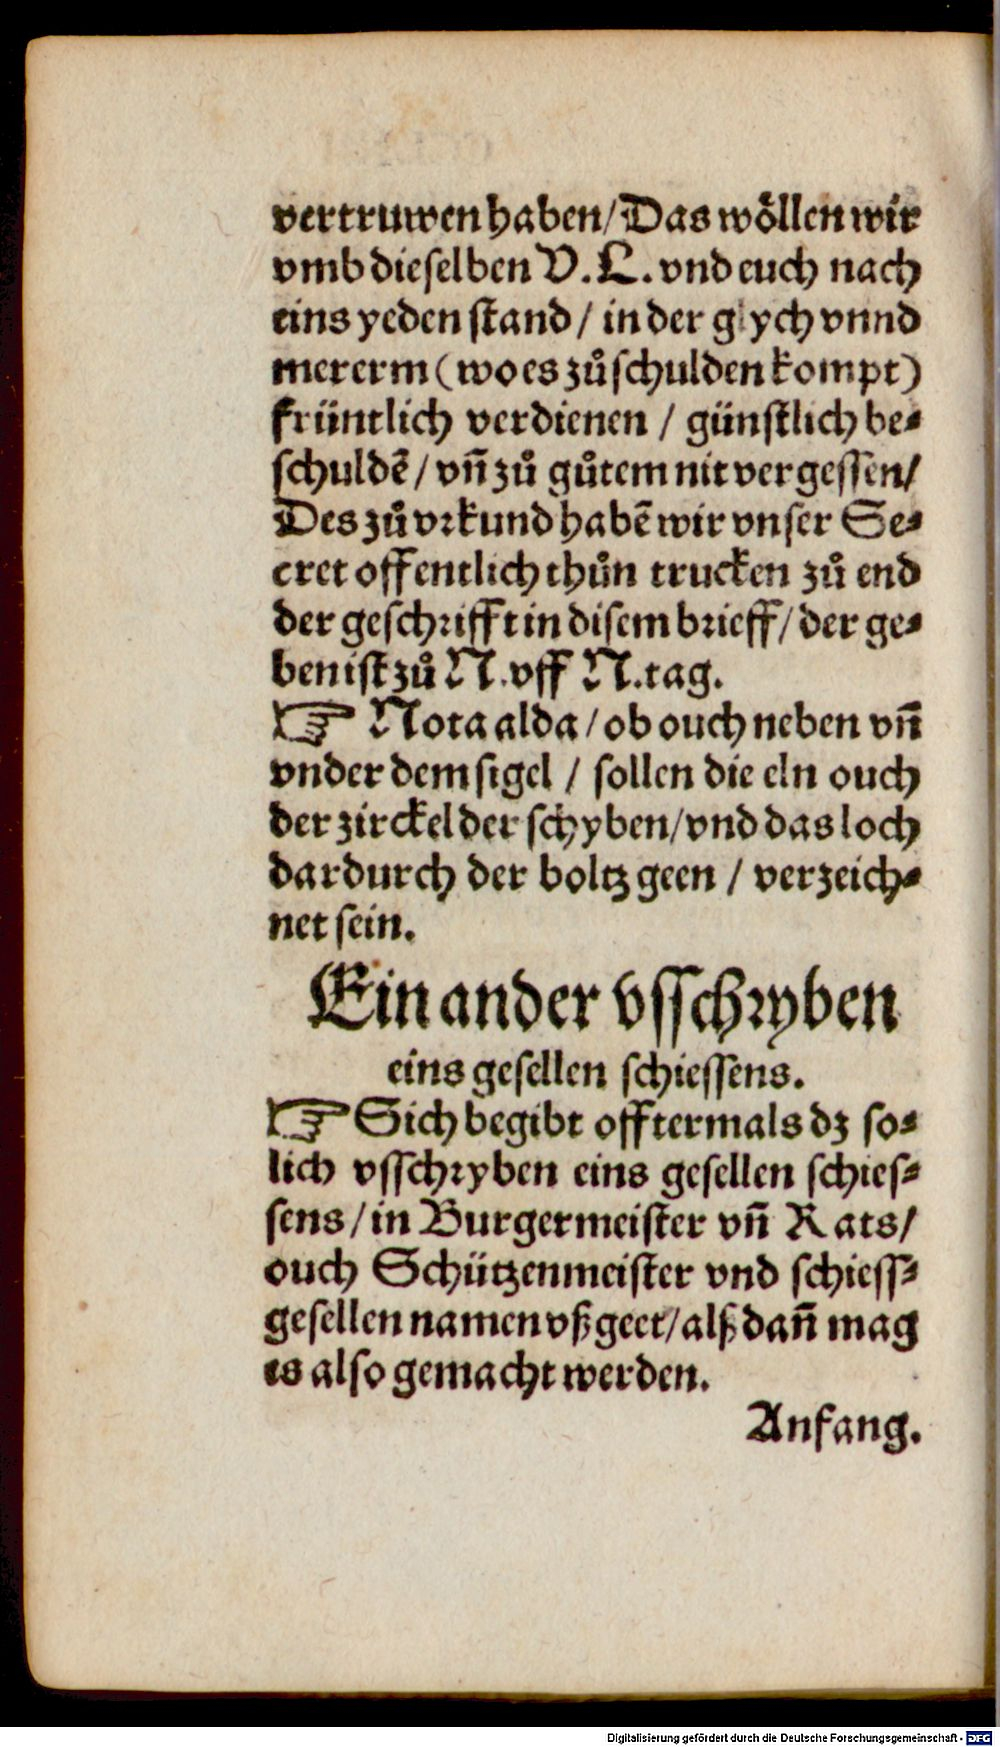 vertruwen haben/ Das woͤllen wir
vmb dieselben V. L. vnd euch nach
eins yeden stand / in der glych vnnd
mererm (wo es zuͦ schulden kompt)
früntlich verdienen / günstlich be⸗
schuldē / vn̄ zuͦ guͦtem nit vergessen/
Des zuͦ vrkund habē wir vnser Se⸗
cret offentlich thuͦn trucken zuͦ end
der geschrifft in disem brieff/ der ge⸗
ben ist zuͦ N. vff N. tag.
☞ Nota alda / ob ouch neben vn̄
vnder dem sigel / sollen die eln ouch
der zirckel der schyben/ vnd das loch
dardurch der boltz geen / verzeich⸗
net sein.
Ein ander vsschryben
eins gesellen schiessens.
☞ Sich begibt offtermals dz so⸗
lich vsschryben eins gesellen schies⸗
sens / in Burgermeister vn̄ Rats/
ouch Schützenmeister vnd schiess⸗
gesellen namen vß geet/ alß dan̄ mag
es also gemacht werden.
Anfang.
Digitalisierung gefördert durch die Deutsche Forschungsgemeinschaft - DFG